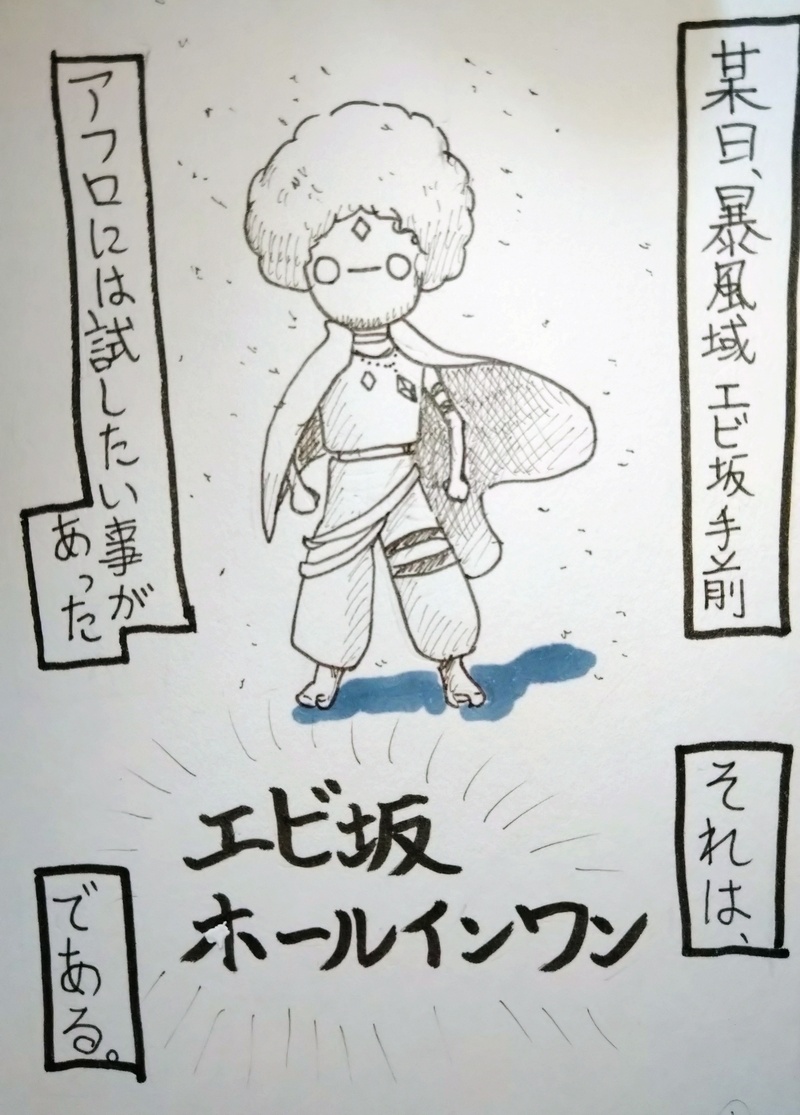 某日、暴風域 エビ坂 手前
アフロには試したい事が
あった
それは、
エビ坂
ホールインワン
である。